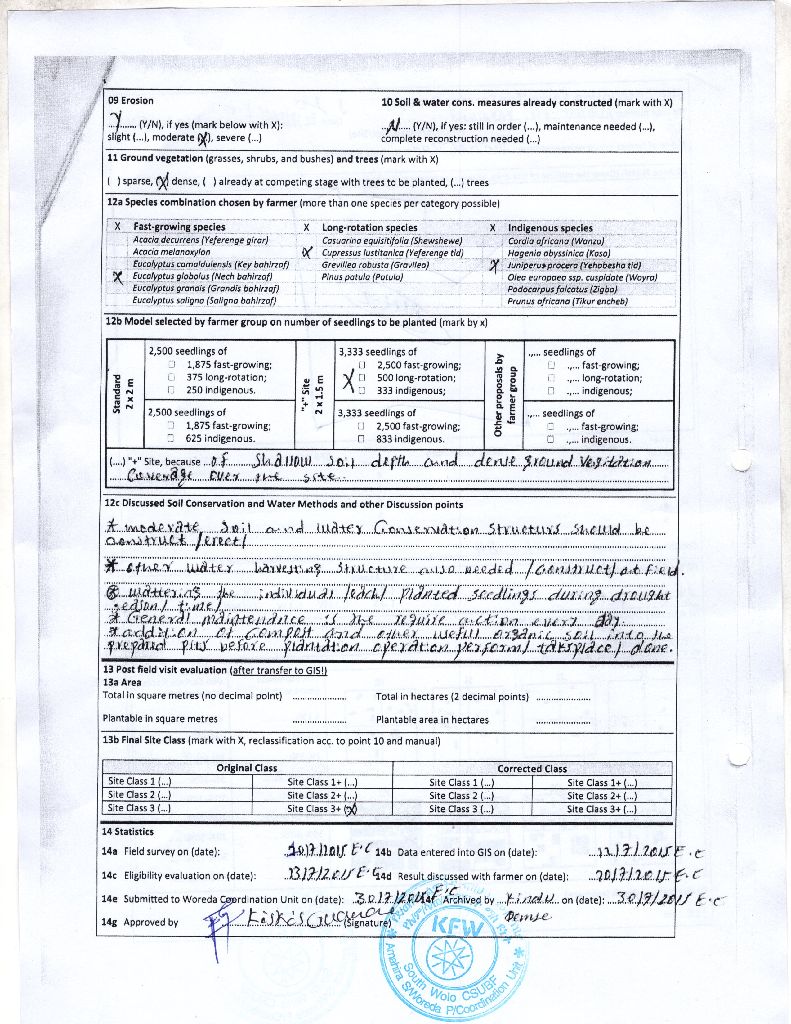 09 Erosion
10 Soil & water cons. measures already constructed (mark with X)
..Y..... (Y/N), if yes (mark below with X):
..N.... (Y/N), if yes: still in order (...), maintenance needed (...),
slight (...), moderate (X), severe (...)
complete reconstruction needed (...)
11 Ground vegetation (grasses, shrubs, and bushes) and trees (mark with X)
( ) sparse, (X) dense, ( ) already at competing stage with trees to be planted, (...) trees
12a Species combination chosen by farmer (more than one species per category possible)
X Fast-growing species X Long-rotation species X Indigenous species
Acacia decurrens (Yeferenge girar) Casuarina equisitifolia (Shewshewe) Cordia africana (Wanza)
Acacia melanoxylon X Cupressus lustitanica (Yeferenge tid) Hagenia abyssinica (Koso)
Eucalyptus camaldulensis (Key bahirzaf) Grevillea robusta (Gravilea) X Juniperus procera (Yehabesha tid)
X Eucalyptus globolus (Nech bahirzaf) Pinus patula (Patula) Olea europaea ssp. cuspidate (Woyra)
Eucalyptus grandis (Grandis bahirzaf) Podocarpus falcatus (Zigba)
Eucalyptus saligna (Saligna bahirzaf) Prunus africana (Tikur encheb)
12b Model selected by farmer group on number of seedlings to be planted (mark by x)
Standard
2 x 2 m
2,500 seedlings of
☐ 1,875 fast-growing;
☐ 375 long-rotation;
☐ 250 indigenous.
2,500 seedlings of
☐ 1,875 fast-growing;
☐ 625 indigenous.
"+" Site
2 x 1.5 m
3,333 seedlings of
☐ 2,500 fast-growing;
X ☐ 500 long-rotation;
☐ 333 indigenous;
3,333 seedlings of
☐ 2,500 fast-growing;
☐ 833 indigenous.
Other proposals by
farmer group
.,... seedlings of
☐ .,... fast-growing;
☐ .,... long-rotation;
☐ .,... indigenous;
.,... seedlings of
☐ .,... fast-growing;
☐ .,... indigenous.
(...) "+" Site, because of Shallow soil depth and dense ground Vegitation
Coverage over the site
12c Discussed Soil Conservation and Water Methods and other Discussion points
* moderate soil and water Conservation structure should be
construct /erect/
* other water harvesting structure also needed /construct/ at field.
* wattering the individuals /each/ planted seedlings during drought
season/ time/
* General maintenance is the require action every day
* addition of compost and other usefull organic soil into the
prepaird pits before plantation operation perform/ takeplace/ done.
13 Post field visit evaluation (after transfer to GIS!)
13a Area
Total in square metres (no decimal point) .................. Total in hectares (2 decimal points) ..................
Plantable in square metres .................. Plantable area in hectares ..................
13b Final Site Class (mark with X, reclassification acc. to point 10 and manual)
Original Class Corrected Class
Site Class 1 (...) Site Class 1+ (...) Site Class 1 (...) Site Class 1+ (...)
Site Class 2 (...) Site Class 2+ (...) Site Class 2 (...) Site Class 2+ (...)
Site Class 3 (...) Site Class 3+ (X) Site Class 3 (...) Site Class 3+ (...)
14 Statistics
14a Field survey on (date): 10/7/2015 E.C 14b Data entered into GIS on (date): 12/7/2015 E.C
14c Eligibility evaluation on (date): 13/7/2015 E.C 14d Result discussed with farmer on (date): 20/7/2015 E.C
14e Submitted to Woreda Coordination Unit on (date): 30/7/2015 E.C 14f Archived by Kindu on (date): 30/7/2015 E.C
Demse
14g Approved by (Signature)
KFW
South Wolo CSUBF
Amahira S/Woreda P/Coordination Unit